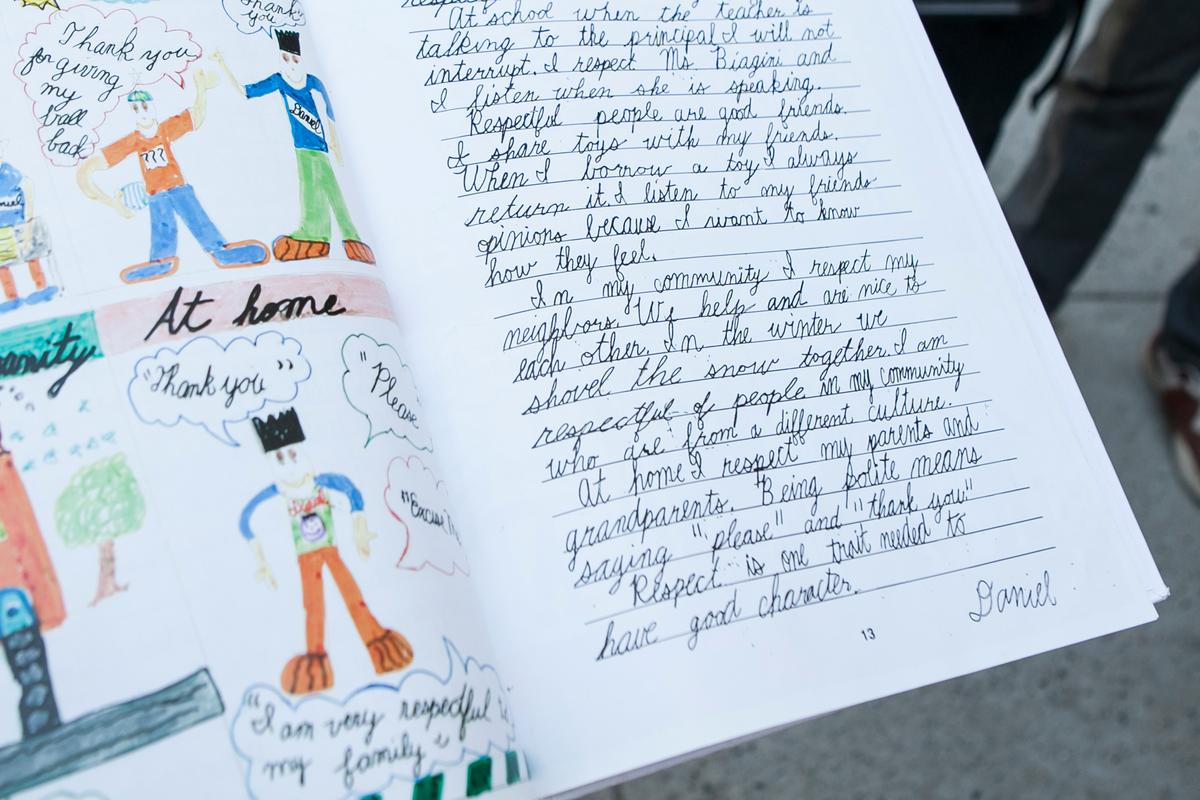 Thank you
for giving
my
ball
back
Thank
you
Daniel
???
At home
"Thank you"
"Please
"I am very respectful
my family"
At school when the teacher is
talking to the principal I will not
interrupt. I respect Ms. Biagini and
I listen when she is speaking.
Respectful people are good friends.
I share toys with my friends.
When I borrow a toy I always
return it. I listen to my friends
opinions because I want to know
how they feel.
In my community I respect my
neighbors. We help and are nice to
each other. In the winter we
shovel the snow together. I am
respectful of people in my community
who are from a different culture.
At home I respect my parents and
grandparents. Being polite means
saying "please" and "thank you"
Respect is one trait needed to
have good character.
Daniel
13